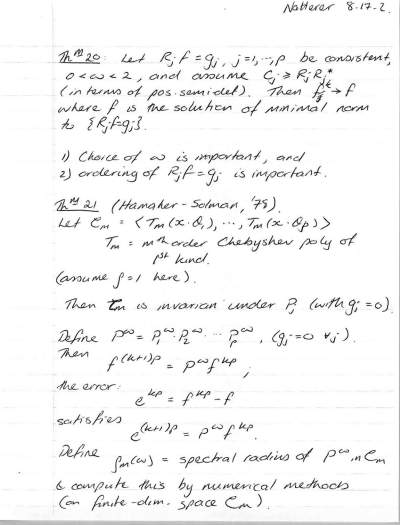 Natterer 8-17-2.
Thm 20: Let Rjf = gj, j=1,..,p be consistent,
0<ω<2, and assume Cj ≥ RjRj*
(in terms of pos. semidef). Then → f
where f is the solution of minimal norm
to {Rjf=gj}.
1) Choice of ω is important, and
2) ordering of Rjf = gj is important.
Thm 21 (Hamaker-Solman, '78).
Let Cm = <Tm(x·θ1), ..., Tm(x·θp)>
Tm = mth order Chebyshev poly of
1st kind.
(assume f=1 here).
Then Cm is invarian under Pj (with gj=0).
Define Pω = P1ω P2ω ... Ppω, (gj=0 ∀j).
Then
f(k+1)p = Pω fkp,
the error:
ekp = fkp - f
satisfies
e(k+1)p = Pω fkp.
Define
ρm(ω) = spectral radius of Pω in Cm
& compute this by numerical methods
(on finite-dim. space Cm).